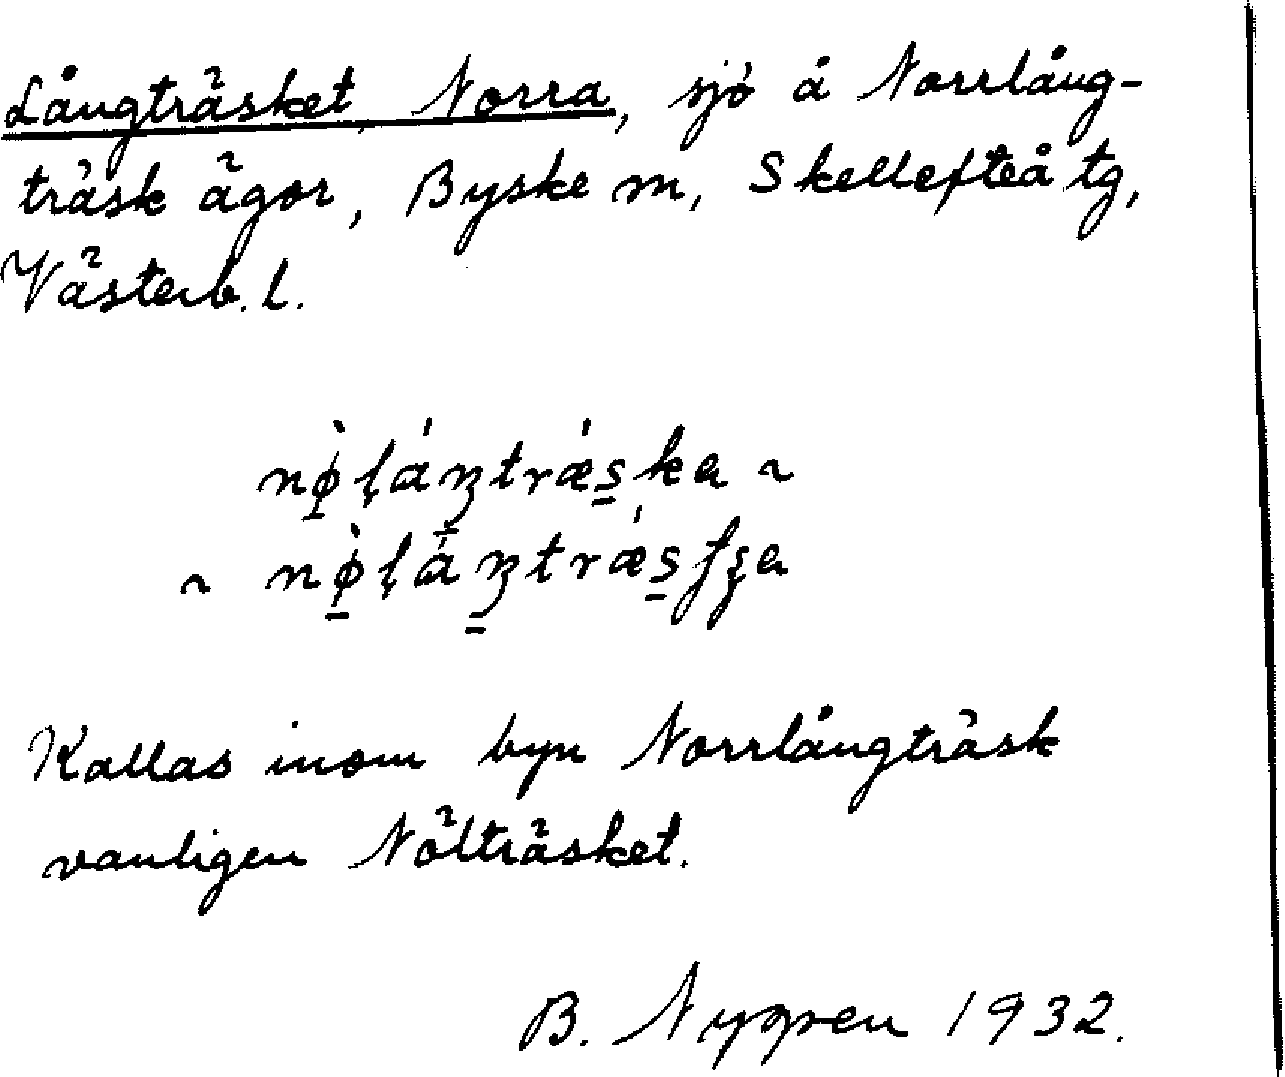 Långträsket, Norra, sjö å Norrlång-
träsk ägor, Byske sn, Skellefteå tg,
Västerb. l.
nø̀ḷáŋtrǽska ~
~ nø̀ḷáŋtrǽsʃʂa
Kallas inom byn Norrlångträsk
vanligen Nölträsket.
B. Nygren 1932.